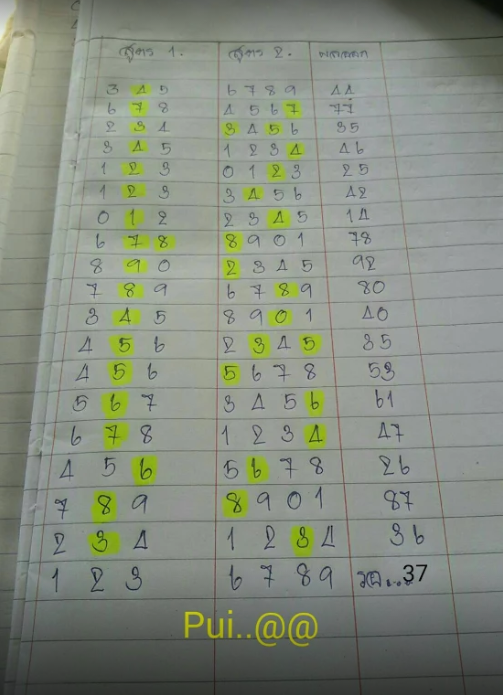 สูตร 1. สูตร 2. ผลหลอก
3 4 5 6 7 8 9 44
6 7 8 4 5 6 7 77
2 3 4 3 4 5 6 35
3 4 5 1 2 3 4 46
1 2 3 0 1 2 3 25
1 2 3 3 4 5 6 42
0 1 2 2 3 4 5 14
6 7 8 8 9 0 1 78
8 9 0 2 3 4 5 92
7 8 9 6 7 8 9 80
3 4 5 8 9 0 1 40
4 5 6 2 3 4 5 35
4 5 6 5 6 7 8 53
5 6 7 3 4 5 6 61
6 7 8 1 2 3 4 47
4 5 6 5 6 7 8 26
7 8 9 8 9 0 1 87
2 3 4 1 2 3 4 36
1 2 3 6 7 8 9 รอ...37
Pui..@@